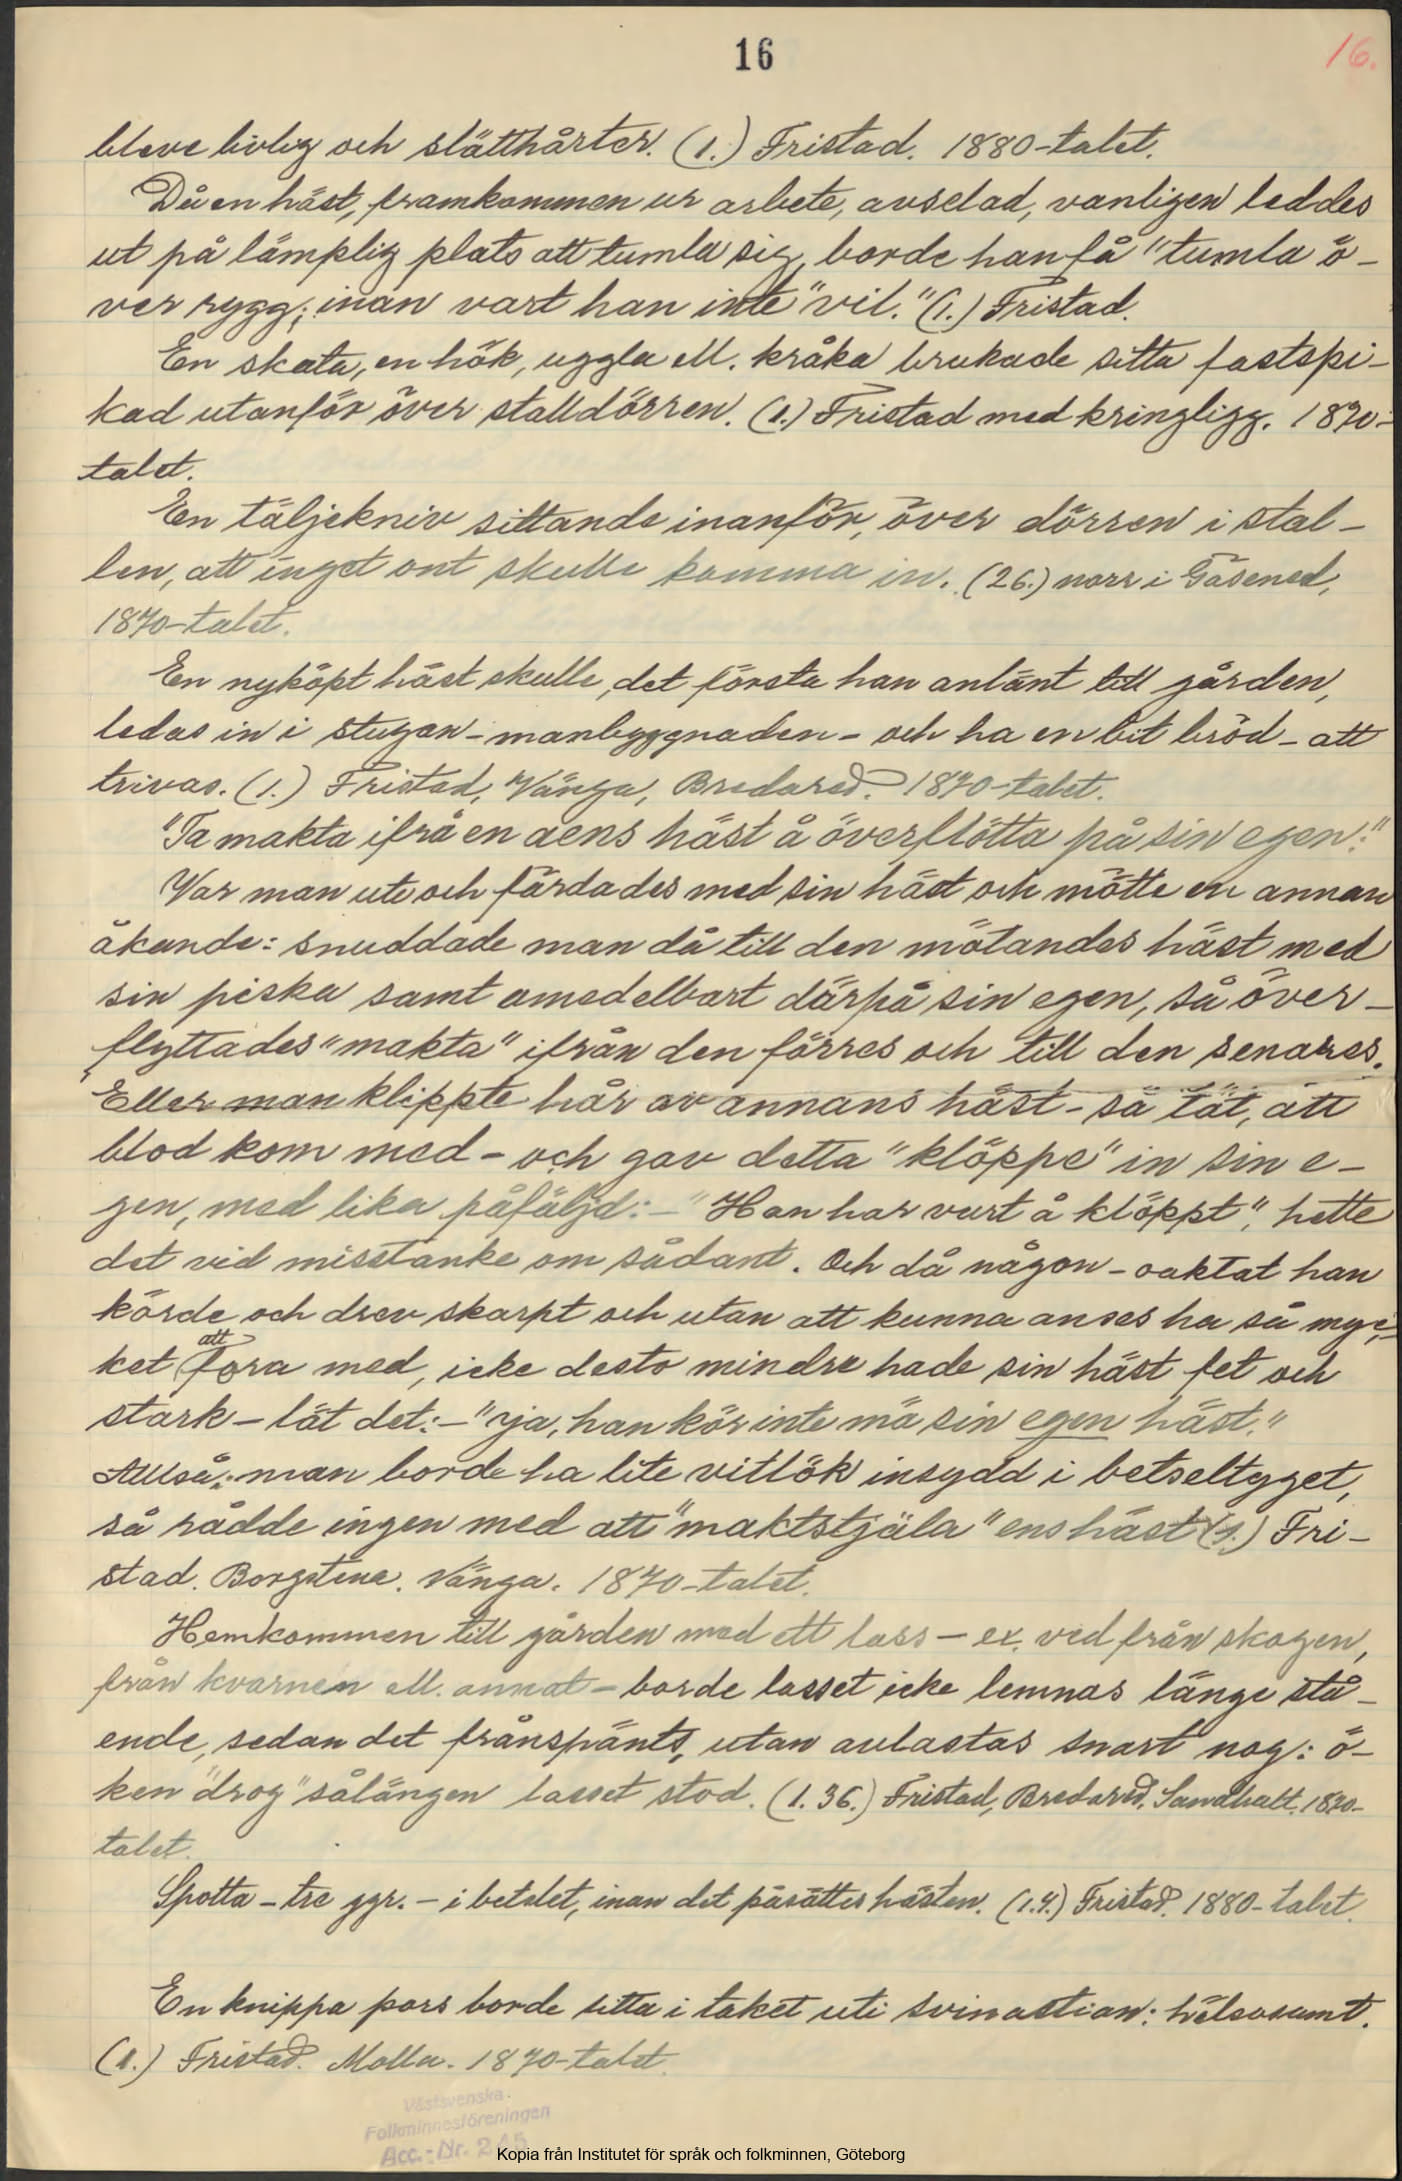 16
16.
bleve livlig och slätthårter. (1.) Fristad. 1880-talet.
Då en häst, framkommen ur arbete, avselad, vanligen leddes
ut på lämplig plats att tumla sig, borde han få "tumla ö-
ver rygg; inan vart han inte "vil." (1.) Fristad.
En skata, en hök, uggla ell. kråka brukade sitta fastspi-
kad utanför över stalldörren. (1.) Fristad med kringligg. 1870-
talet.
En täljekniv sittande inanför, över dörren i stal-
len, att inget ont skulle komma in. (26.) norr i Gäsened,
1870-talet.
En nyköpt häst skulle, det första han anlänt till gården,
ledas in i stugan - manbyggnaden - och ha en bit bröd - att
trivas. (1.) Fristad, Vänga, Bredared. 1870-talet.
"Ta makta ifrå en aens häst å överflötta på sin egen:"
Var man ute och färdades med sin häst och mötte en annan
åkande: snuddade man då till den mötandes häst med
sin piska samt omedelbart därpå sin egen, så över-
flyttades "makta" ifrån den förres och till den senares.
Eller man klippte hår av annans häst - så tät, att
blod kom med - och gav detta "klöppe" in sin e-
gen, med lika påföljd: - "Han har vart å klöppt", hette
det vid misstanke om sådant. Och då någon - oaktat han
körde och drev skarpt och utan att kunna anses ha så myc-
ket att fora med, icke desto mindre hade sin häst fet och
stark - lät det: - "ja, han kör inte mä sin egen häst."
Alltså: man borde ha lite vitlök insydd i betseltyget,
så rådde ingen med att "maktstjäla" ens häst (1.) Fri-
stad. Borgstena. Vänga. 1870-talet.
Hemkommen till gården med ett lass - ex. ved från skogen,
från kvarnen ell. annat - borde lasset icke lemnas länge stå-
ende, sedan det frånspänts, utan avlastas snart nog: ö-
ken "drog" sålängen lasset stod. (1. 36.) Fristad, Bredared, Sandhult. 1870-
talet.
Spotta - tre ggr. - i betslet, inan det påsättes hästen. (1.4.) Fristad. 1880-talet.
En knippa pors borde sitta i taket uti svinastian: hälsosamt.
(1.) Fristad. Molla. 1870-talet.
Västsvenska
Folkminnesföreningen
Acc.-Nr.
Kopia från Institutet för språk och folkminnen, Göteborg